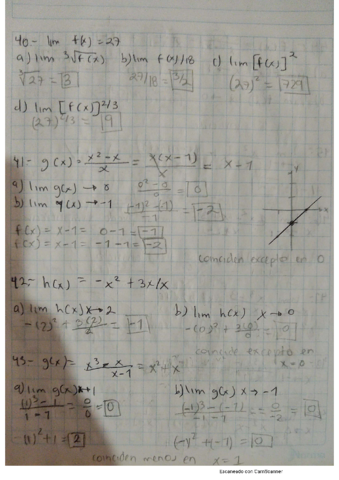 40.- lim f(x) = 27
a) lim ³√f(x)  b) lim f(x)/18  c) lim [f(x)]²
³√27 = 3  27/18 = 3/2  (27)² = 729
d) lim [f(x)]^2/3
(27)^2/3 = 9
41- g(x) = x²-x/x = x(x-1)/x = x-1
a) lim g(x) → 0  0²-0/0 = 0
b) lim g(x) → -1  (-1)²-(-1)/-1 = -2
f(x) = x-1 = 0-1 = -1
f(x) = x-1 = -1-1 = -2
coinciden excepto en 0
42- h(x) = -x² + 3x/x
a) lim h(x) x→2  b) lim h(x) x→0
-(2)² + 3(2)/2 = -1  -(0)² + 3(0)/0 = 0
coinciden excepto en
x=0
43- g(x) = x³-x/x-1 = x²+x
a) lim g(x) x→1  b) lim g(x) x→-1
(1)³-1/1-1 = 0/0 = 0  (-1)³-(-1)/-1-1 = 0/-2 = 0
(1)²+1 = 2  (-1)²+(-1) = 0
coinciden menos en x=1
Escaneado con CamScanner